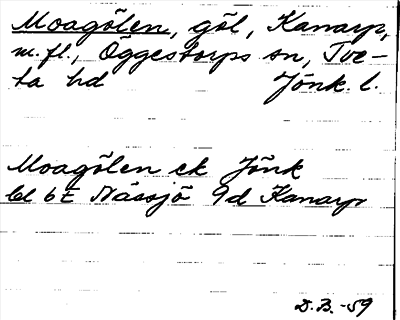 Moagölen, göl, Kanarp,
m.fl., Öggestorps sn, Tve-
ta hd Jönk. l.
Moagölen ek Jönk
bl 6E Nässjö 9d Kanarp
D.B. -59